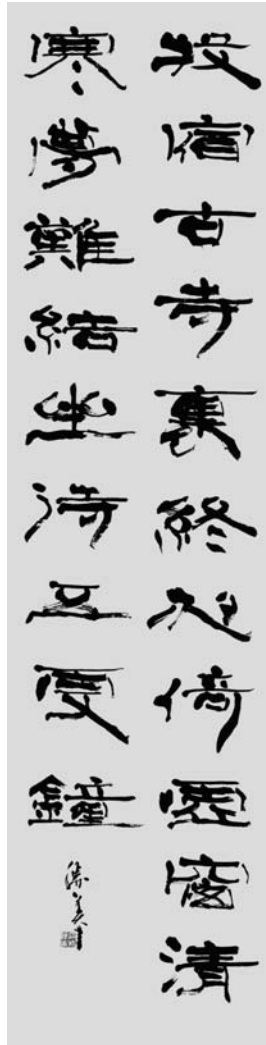 投宿古寺裏終夜倚虛窗清
寒夢難結坐待五更鐘